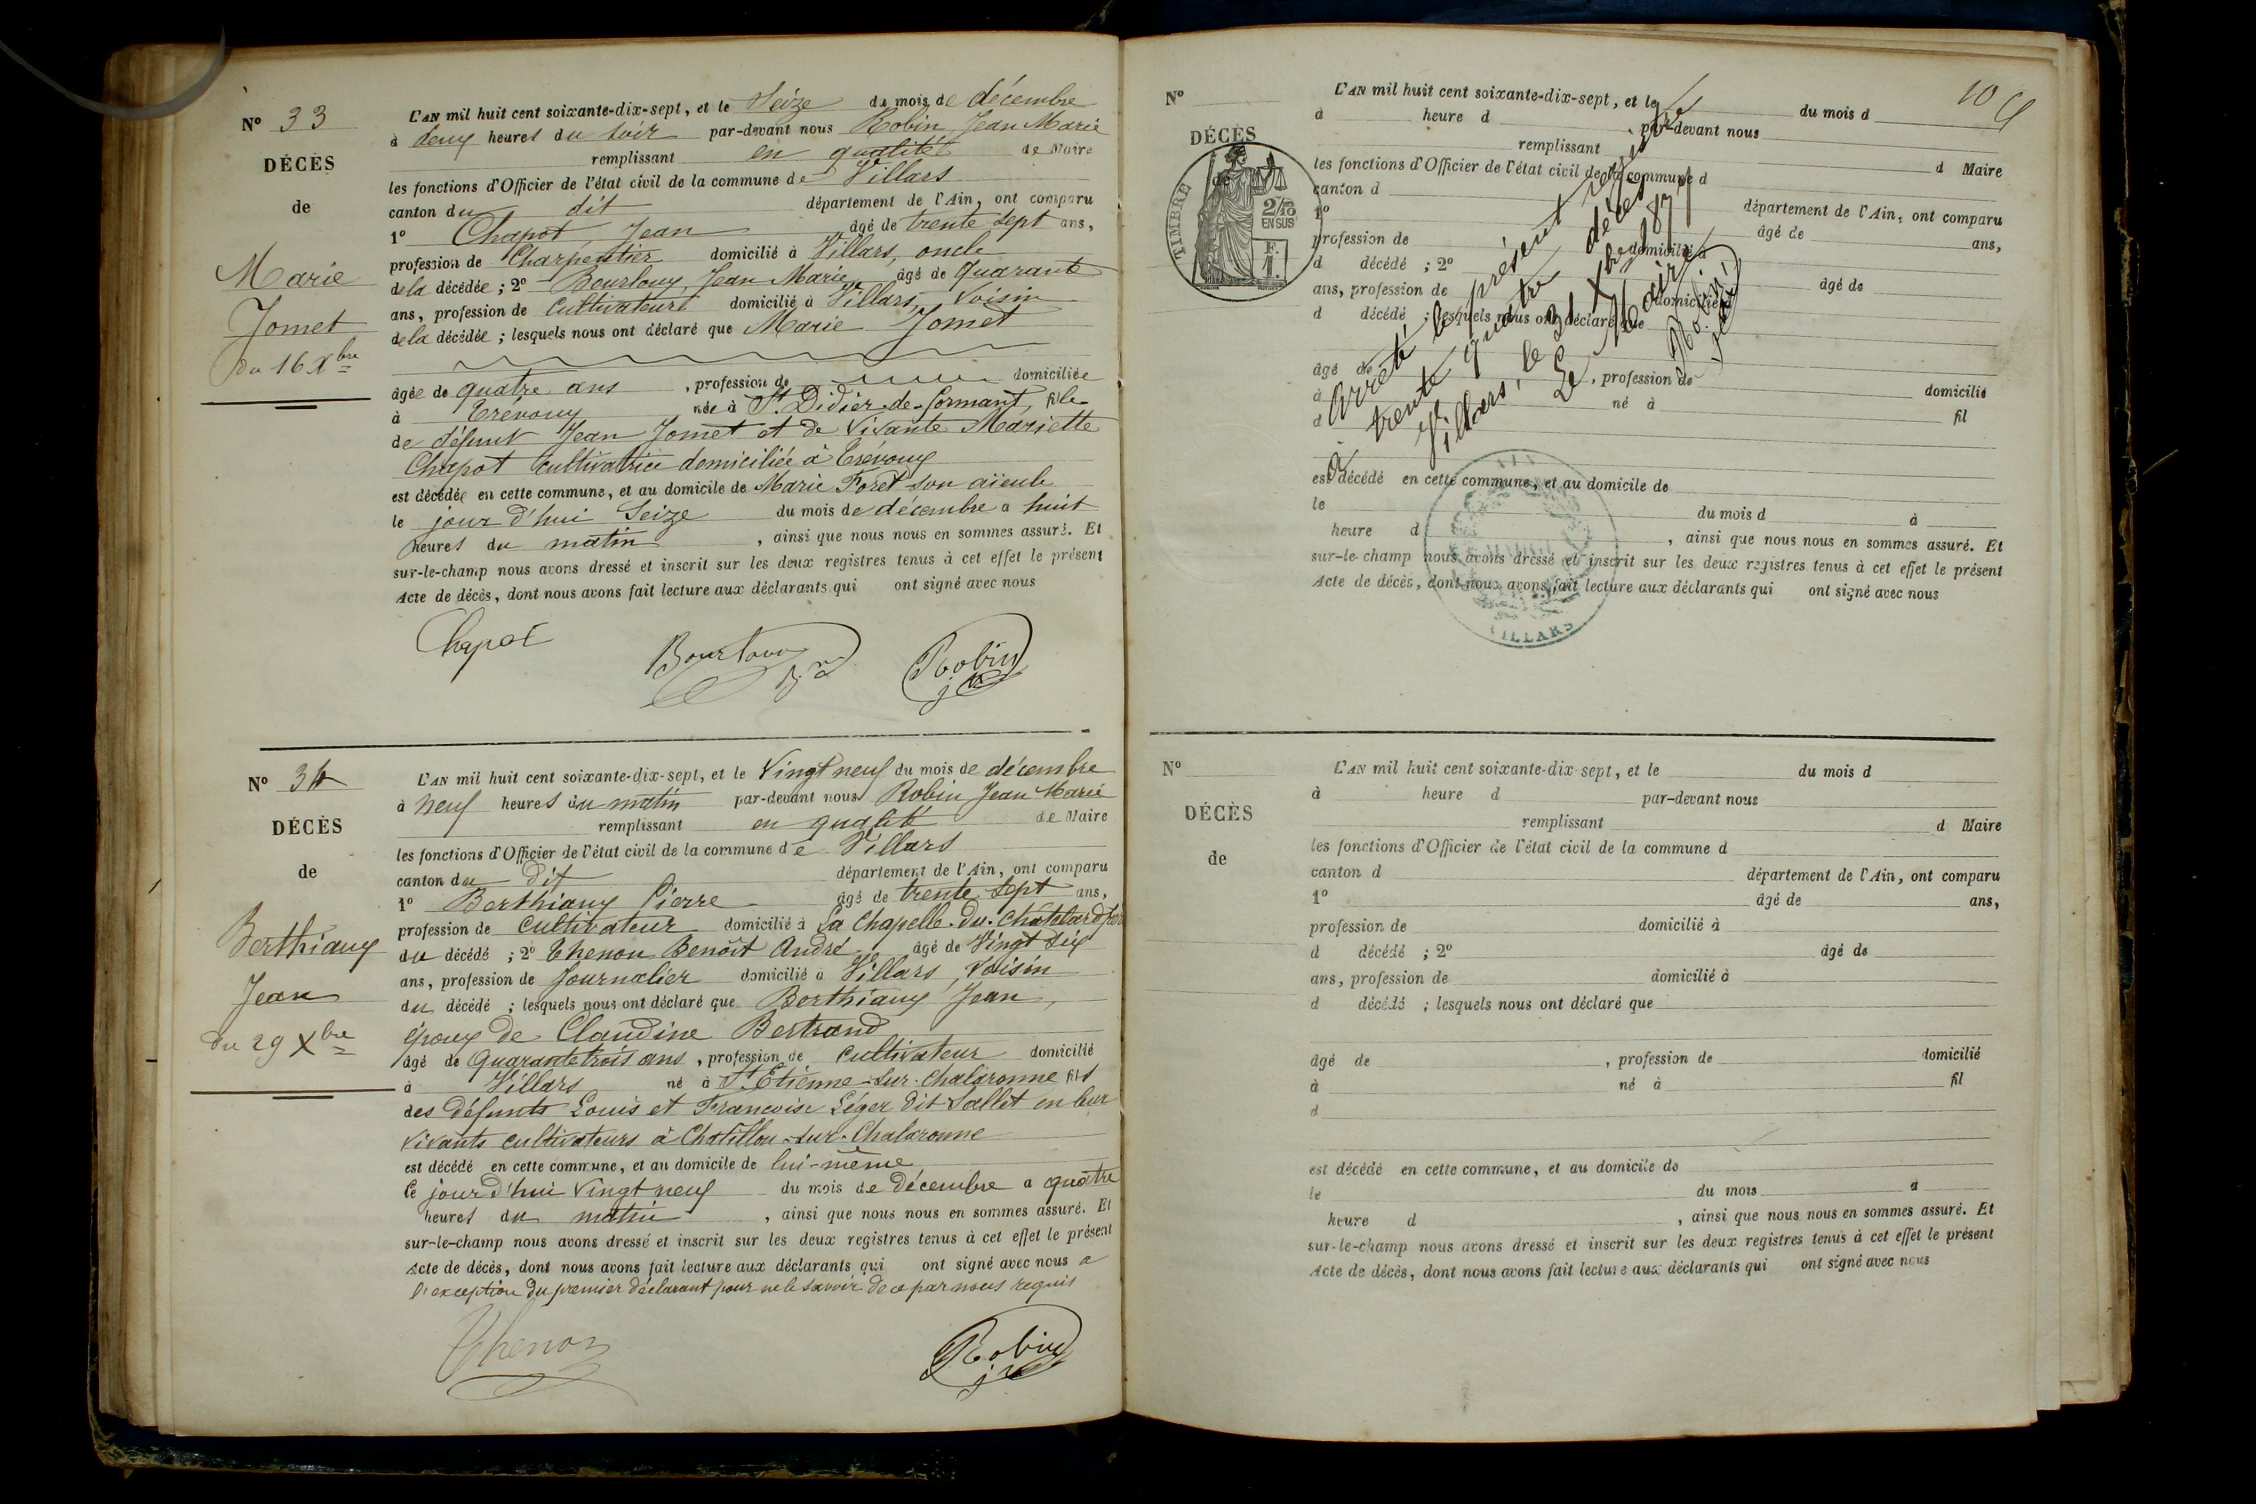 N° 33
DÉCÈS
de
Marie
Jomet
du 16 Xbre
L'AN mil huit cent soixante-dix-sept, et le Seize du mois de décembre
à deux heures du soir par-devant nous Robin Jean Marie
remplissant en qualité de Maire
les fonctions d'Officier de l'état civil de la commune de Villars
canton du dit département de l'Ain, ont comparu
1° Chapot Jean âgé de trente sept ans,
profession de Charpentier domicilié à Villars, oncle
de la décédée ; 2° Bourloux, Jean Marie âgé de quarante
ans, profession de Cultivateur domicilié à Villars, Voisin
de la décédée ; lesquels nous ont déclaré que Marie Jomet
âgée de quatre ans , profession de domiciliée
à Trévoux née à St. Didier-de-formant, fille
de défunt Jean Jomet et de Vivante Mariette
Chapot cultivatrice domiciliée à Trévoux
est décédée en cette commune, et au domicile de Marie Foret son aïeule
le jour d'hui Seize du mois de décembre a huit
heures du matin , ainsi que nous nous en sommes assuré. Et
sur-le-champ nous avons dressé et inscrit sur les deux registres tenus à cet effet le présent
Acte de décès, dont nous avons fait lecture aux déclarants qui ont signé avec nous
Chapot Bourloux Robin
N° 34
DÉCÈS
de
Berthiaux
Jean
du 29 Xbre
L'AN mil huit cent soixante-dix-sept, et le Vingt neuf du mois de décembre
à neuf heures du matin par-devant nous Robin Jean Marie
remplissant en qualité de Maire
les fonctions d'Officier de l'état civil de la commune de Villars
canton du dit département de l'Ain, ont comparu
1° Berthiaux Pierre âgé de trente sept ans,
profession de Cultivateur domicilié à La Chapelle-du-Chatelard
du décédé ; 2° Thenon Benoît André âgé de Vingt six
ans, profession de Journalier domicilié à Villars, Voisin
du décédé ; lesquels nous ont déclaré que Berthiaux Jean,
époux de Claudine Bertrand
âgé de Quarante trois ans , profession de cultivateur domicilié
à Villars né à St Etienne-sur-chalaronne fils
des défunts Louis et Francoise Léger dit Sallet en leur
vivants cultivateurs à Chatillon-sur-Chalaronne
est décédé en cette commune, et au domicile de lui-même
le jour d'hui Vingt neuf du mois de Décembre a quatre
heures du matin , ainsi que nous nous en sommes assuré. Et
sur-le-champ nous avons dressé et inscrit sur les deux registres tenus à cet effet le présent
Acte de décès, dont nous avons fait lecture aux déclarants qui ont signé avec nous a
l'exception du premier déclarant pour ne le savoir de ce par nous requis
Thenon Robin
10
N°
DÉCÈS
de
TIMBRE
2/10
EN SUS
F.
1.
L'AN mil huit cent soixante-dix-sept, et le du mois d
à heure d par-devant nous
remplissant d Maire
les fonctions d'Officier de l'état civil de la commune d
canton d département de l'Ain, ont comparu
1° âgé de ans,
profession de domicilié à
d décédé ; 2° âgé de
ans, profession de domicilié à
d décédé ; lesquels nous ont déclaré que
âgé de , profession de domicilié
à né à fil
d
est décédé en cette commune, et au domicile de
le du mois d à
heure d , ainsi que nous nous en sommes assuré. Et
sur-le-champ nous avons dressé et inscrit sur les deux registres tenus à cet effet le présent
Acte de décès, dont nous avons fait lecture aux déclarants qui ont signé avec nous
Arrêté le présent registre
à trente quatre décès
Villars, le 31 Xbre 1877
Le Maire
Robin
VILLARS
N°
DÉCÈS
de
L'AN mil huit cent soixante-dix-sept, et le du mois d
à heure d par-devant nous
remplissant d Maire
les fonctions d'Officier de l'état civil de la commune d
canton d département de l'Ain, ont comparu
1° âgé de ans,
profession de domicilié à
d décédé ; 2° âgé de
ans, profession de domicilié à
d décédé ; lesquels nous ont déclaré que
âgé de , profession de domicilié
à né à fil
d
est décédé en cette commune, et au domicile de
le du mois à
heure d , ainsi que nous nous en sommes assuré. Et
sur-le-champ nous avons dressé et inscrit sur les deux registres tenus à cet effet le présent
Acte de décès, dont nous avons fait lecture aux déclarants qui ont signé avec nous